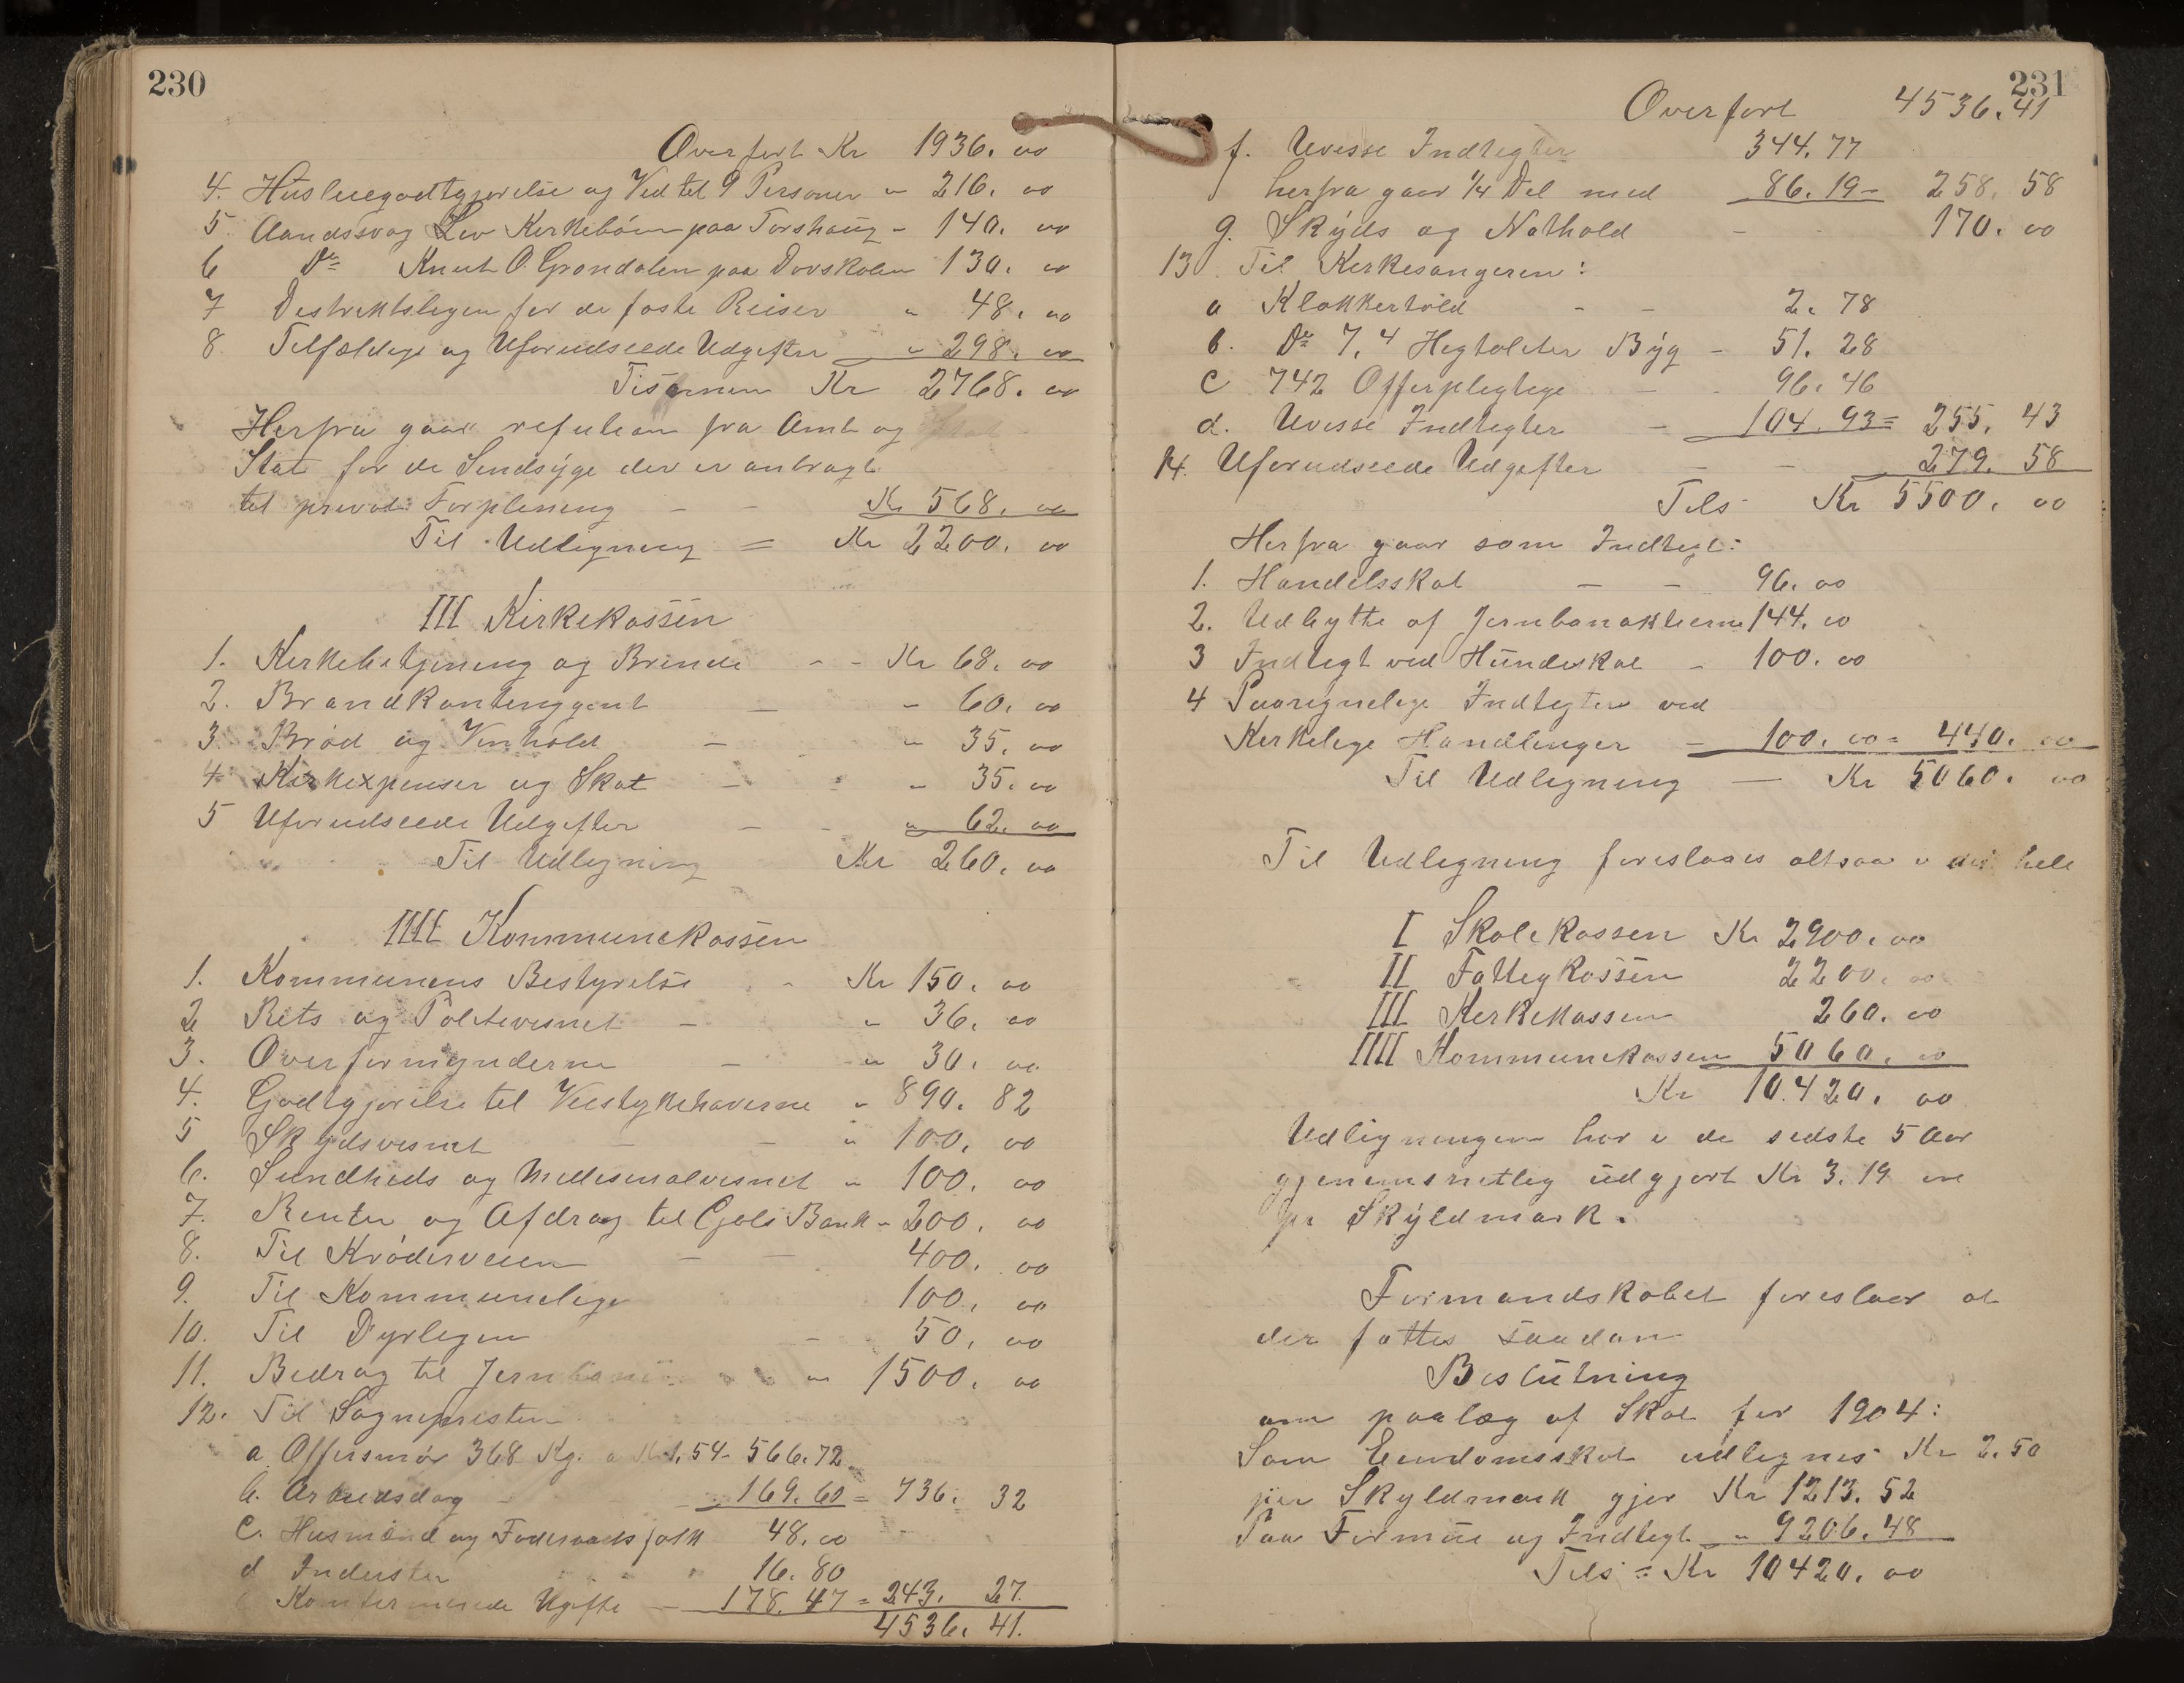 230
Overført Kr 1936. 00
4. Husleiegodtgjørelse og Ved til 9 Personer " 216. 00
5 Aandssvag Liv Kirkebøen paa Torshaug - 140. 00
6 Do Knut O. Grøndalen paa Dovskolen 130. 00
7 Destriktslegen for de faste Reiser " 48. 00
8 Tilfældige og Uforudseede Udgifter " 298. 00
Tisamen Kr 2768. 00
Herfra gaar refution fra Amt og
Stat for de Sindsyge der er anbragt
til privat Forpleining - - Kr 568. 00
Til Udligning = Kr 2200. 00
III Kirkekassen
1. Kirkebetjening og Brende - - Kr 68. 00
2. Brandkontinggent - " 60. 00
3. Brød og Vinhold - " 35. 00
4 Kirkexpenser og Skat - - " 35. 00
5 Uforudseede Udgifter - - " 62. 00
Til Udligning Kr 260. 00
IIII Kommunekassen
1. Kommunens Bestyrelse - Kr 150. 00
2 Rets og Politivesnet - " 36. 00
3. Overformynderne - " 30. 00
4. Godtgjørelse til Veistykkehaverne " 890. 82
5 Skydsvesnet - - " 100. 00
6. Sundheds og Medisinalvesnet " 100. 00
7. Renter og Afdrag til Gols Bank - 200. 00
8. Til Krøderveien - - 400. 00
9. Til Kommunelege 100. 00
10. Til Dyrlegen - 50. 00
11. Bedrag til Jernbanen " 1500. 00
12. Til Sognepresten
a. Offersmør 368 Kg. a Kr 1,54 - 566.72
b. Arbeidsdag - 169.60 = 736. 32
c. Husmænd og Foderaadsfolk 48.00
d Inderster 16.80
Konfirmerede Ugifte - 178.47 = 243. 27.
4536. 41.
231
Overført 4536.41
f. Uvisse Indtegter 344.77
herfra gaar 1/4 Del med 86.19 - 258. 58
g. Skyds og Nathold - 170. 00
13. Til Kirkesangeren:
a Klokkertold - - 2. 78
b. Do 7,4 Hegtoliter Byg - 51. 28
c 742 Offerpligtige - - 96. 46
d. Uvisse Indtegter - 104. 93 = 255. 43
14. Uforudseede Udgifter - - 279. 58
Tils - Kr 5500. 00
Herfra gaar som Indtegt:
1. Handelsskat - - 96. 00
2. Udbytte af Jernbanaktierne 144. 00
3 Indtegt ved Hundeskat - 100. 00
4 Paaregnelige Indtegter ved
Kirkelige Handlinger - 100. 00 = 440. 00
Til Udligning - Kr 5060. 00
Til Udligning foreslaaes altsaa i det hele
I Skolekassen Kr 2900. 00
II Fattigkassen 2200. 00
III Kirkekassen 260. 00
IIII Kommunekassen 5060. 00
Kr 10.420. 00
Udligningen har i de sidste 5 Aar
gjenemsnitlig udgjort Kr 3.19 øre
pr Skyldmark.
Formandskabet foreslaar at
der fattes saadan
Beslutning
om paalæg af Skat for 1904:
Som Eiendomsskat udlignes Kr 2.50
per Skyldmark gjør Kr 1213. 52
Paa Formue og Indtegt " 9206. 48
Tils = Kr 10420. 00